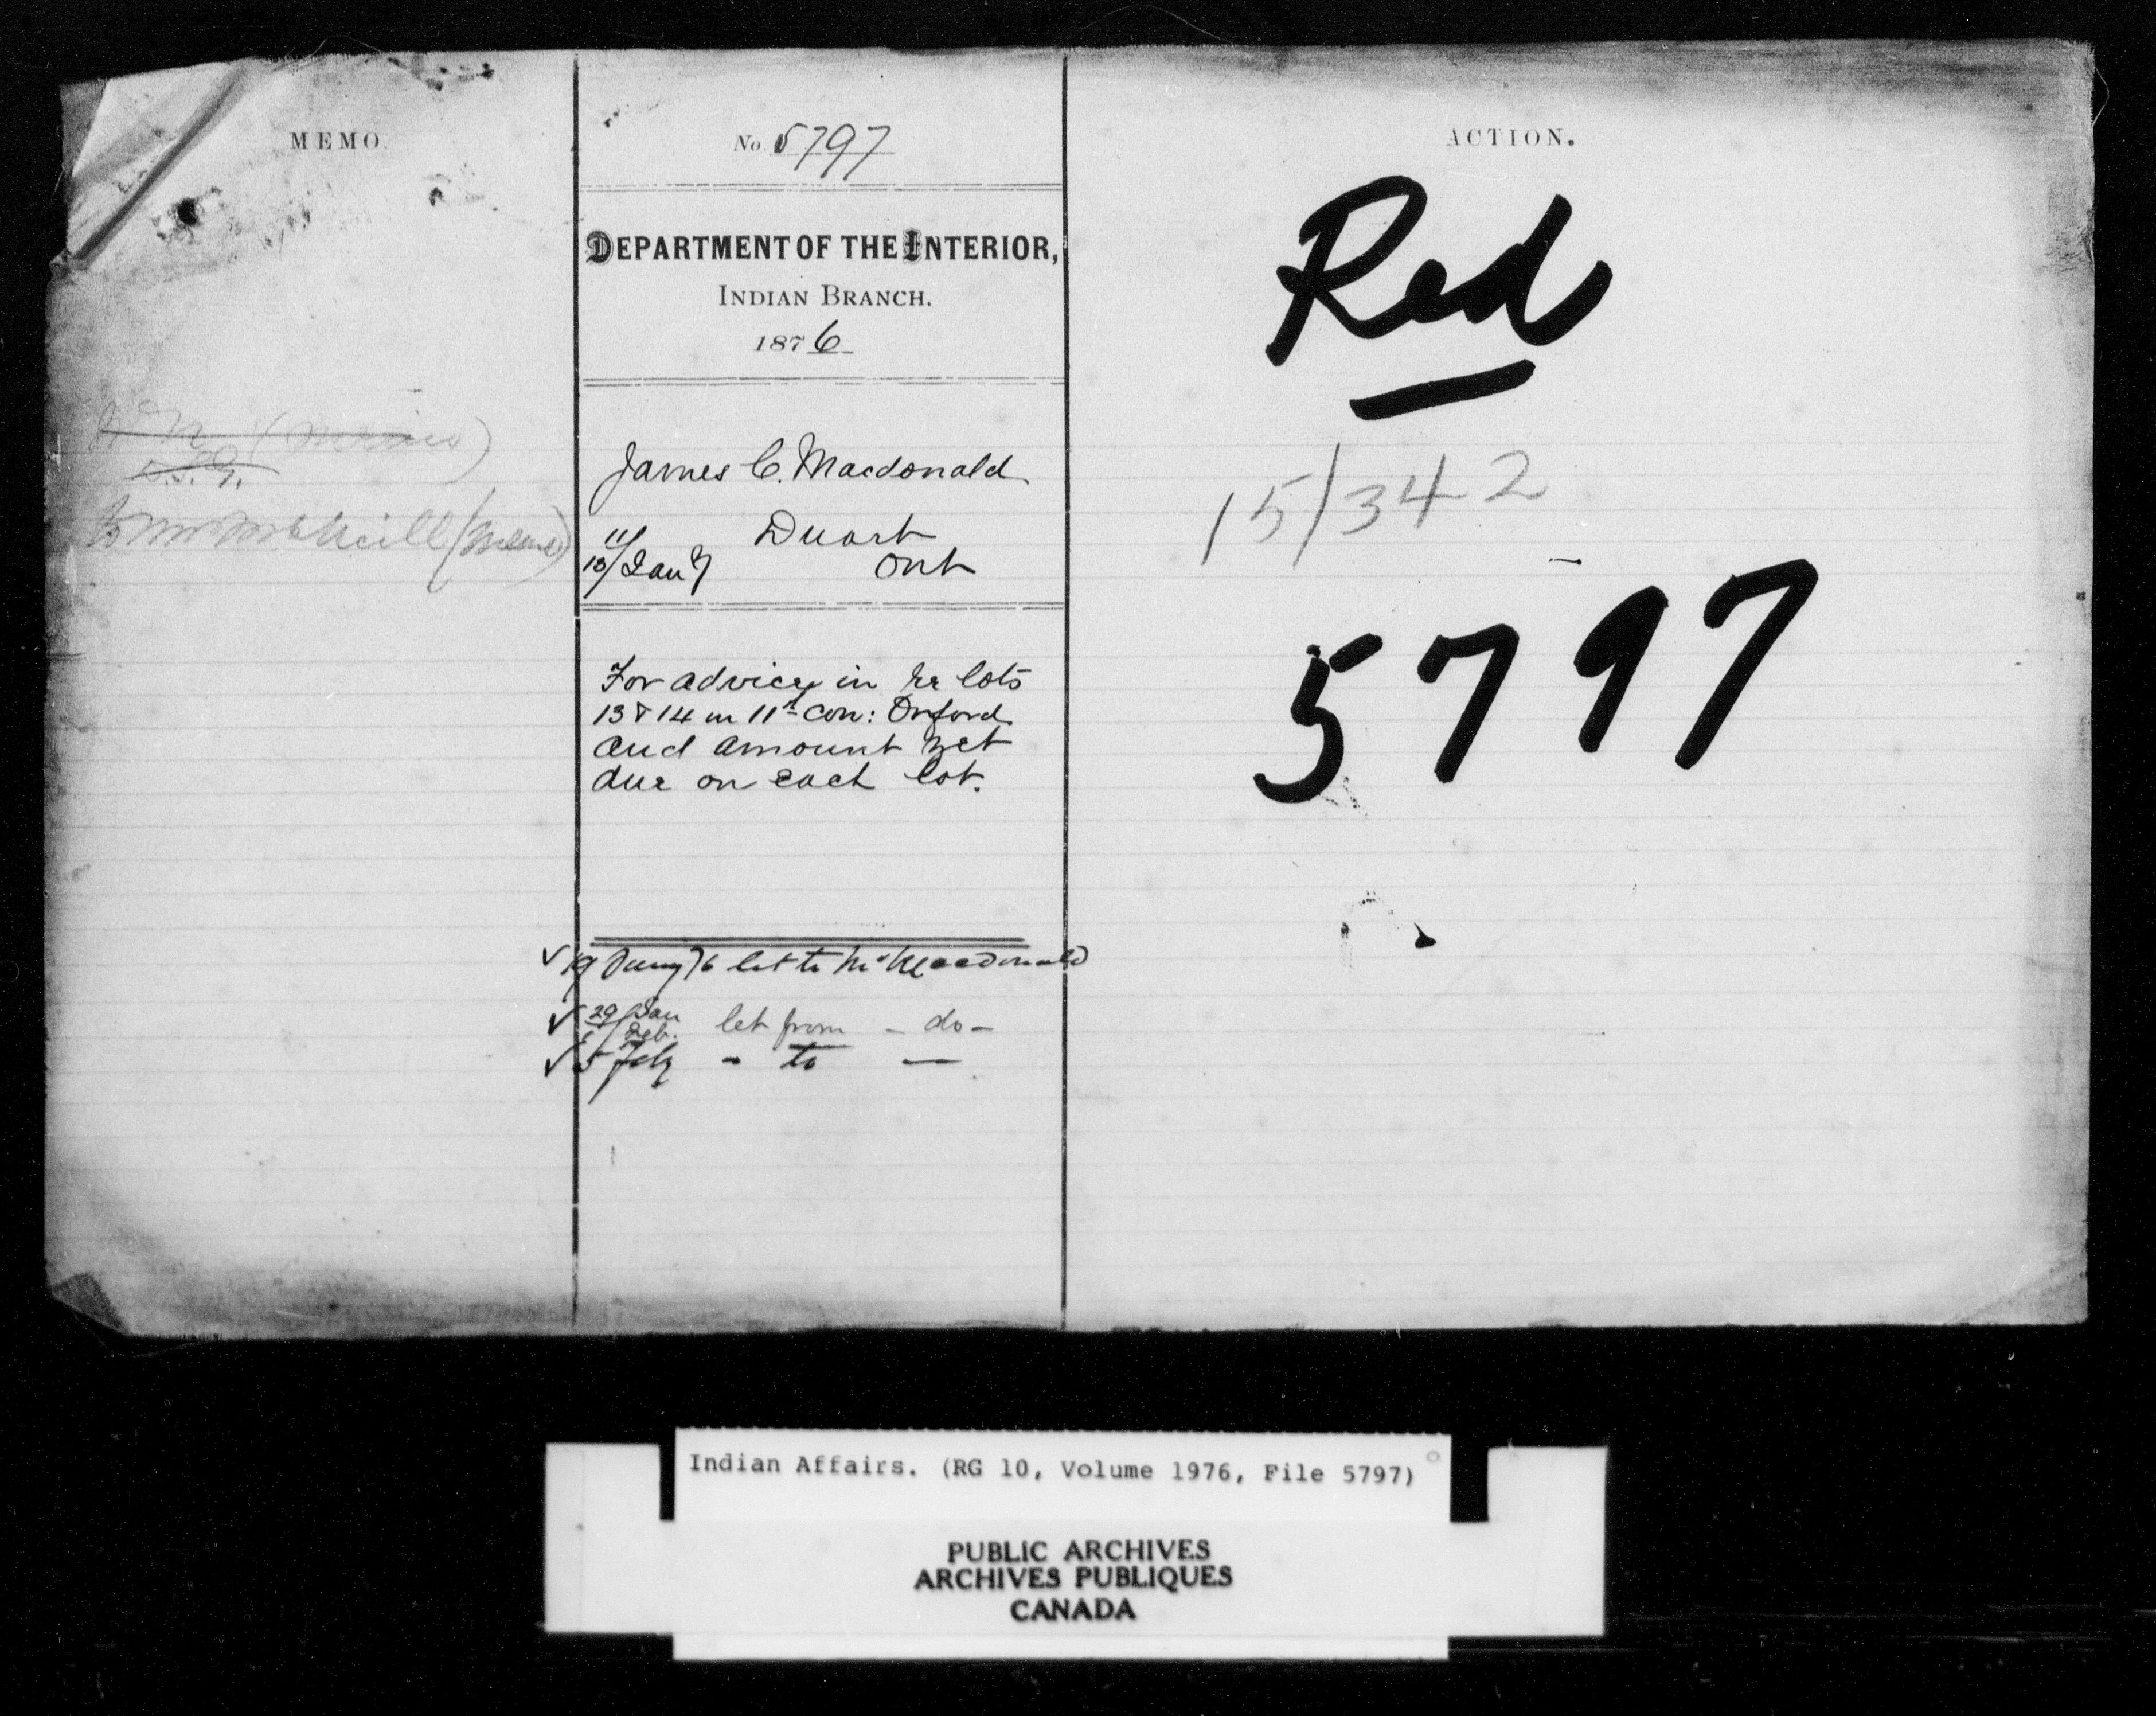 MEMO.
(memo)
To Mr McNeill (memo)
No. 5797
DEPARTMENT OF THE INTERIOR,
INDIAN BRANCH.
1876
James C. Macdonald
11/ Duart
13/Jany Ont
For advice in re lots
13 & 14 in 11th Con: Orford
and amount yet
due on each lot.
✓ 19 Jany 76 let to Mr Macdonald
✓ 29/Jan let from - do -
1/Feb.
✓ 5 Feby - to —
ACTION.
Red
15/342
5797
Indian Affairs. (RG 10, Volume 1976, File 5797)
PUBLIC ARCHIVES
ARCHIVES PUBLIQUES
CANADA